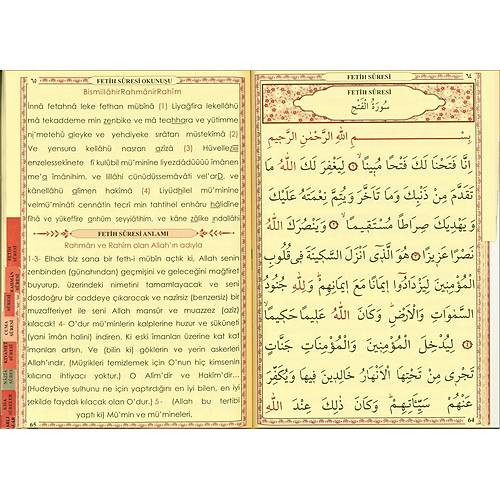 ٦٥
FETİH SÛRESİ OKUNUŞU
BismillâhirRahmânirRahîm
İnnâ fetahnâ leke fethan mübînâ (1) Liyağfira lekellâhü
mâ tekaddeme min zenbike ve mâ teahhara ve yütimme
nı'metehû gleyke ve yehdiyeke srâtan müstekîmâ (2)
Ve yensura kellâhü nasran gzîzâ (3) Hüvellezîî
enzelessekînete fî kulûbil mü'minîne liyezdâdûûû îmânen
me'g îmânihim, ve lillâhi cünûdüssemâvâti vel'arD, ve
kânellâhü glîmen hakîmâ (4) Liyüdhilel mü'minîne
velmü'minâti cennâtin tecrî min tahtihel enhâru hâlidîne
fîhâ ve yükeffire gnhüm seyyiâtihim, ve kâne zâlike ındallâhi
FETİH SÛRESİ ANLAMI
Rahmân ve Rahîm olan Allah'ın adıyla
1-3- Elhak biz sana bir feth-i mübîn açtık ki, Allah senin
zenbinden (günahından) geçmişini ve geleceğini mağfiret
buyurup, üzerindeki nimetini tamamlayacak ve seni
dosdoğru bir caddeye çıkaracak ve nazîrsiz (benzersiz) bir
muzafferiyet ile seni Allah mansûr ve muazzez (aziz)
kılacak! 4- O'dur mü'minlerin kalplerine huzur ve sükûneti
(yani îmân halini) indiren. Ki eski îmanları üzerine kat kat
îmanları artsın. Ve (bilin ki) göklerin ve yerin askerleri
Allah'ındır. (Müşrikleri temizlemek için O'nun hiç kimsenin
kılıcına ihtiyacı yoktur.) O Alîm'dir ve Hakîm'dir...
(Hudeybiye sulhunu ne için yaptırdığını en iyi bilen, en iyi
şekilde faydalı kılacak olan O'dur.) 5- (Allah bu tertibi
yaptı ki) Mü'min ve mü'mineleri,
65
FETİH SÛRESİ
٦٤
FETİH SÛRESİ
سُورَةُ الْفَتْحِ
بِسْمِ اللّٰهِ الرَّحْمٰنِ الرَّحٖيمِ
اِنَّا فَتَحْنَا لَكَ فَتْحًا مُبٖينًا ﴿١﴾ لِيَغْفِرَ لَكَ اللّٰهُ مَا
تَقَدَّمَ مِنْ ذَنْبِكَ وَمَا تَاَخَّرَ وَيُتِمَّ نِعْمَتَهُ عَلَيْكَ
وَيَهْدِيَكَ صِرَاطًا مُسْتَقٖيمًا ﴿٢﴾ وَيَنْصُرَكَ اللّٰهُ
نَصْرًا عَزٖيزًا ﴿٣﴾ هُوَ الَّذٖى اَنْزَلَ السَّكٖينَةَ فٖى قُلُوبِ
الْمُؤْمِنٖينَ لِيَزْدَادُوا اٖيمَانًا مَعَ اٖيمَانِهِمْ وَلِلّٰهِ جُنُودُ
السَّمٰوَاتِ وَالْاَرْضِ وَكَانَ اللّٰهُ عَلٖيمًا حَكٖيمًا
﴿٤﴾ لِيُدْخِلَ الْمُؤْمِنٖينَ وَالْمُؤْمِنَاتِ جَنَّاتٍ
تَجْرٖى مِنْ تَحْتِهَا الْاَنْهَارُ خَالِدٖينَ فٖيهَا وَيُكَفِّرَ
عَنْهُمْ سَيِّئَاتِهِمْ وَكَانَ ذٰلِكَ عِنْدَ اللّٰهِ
64